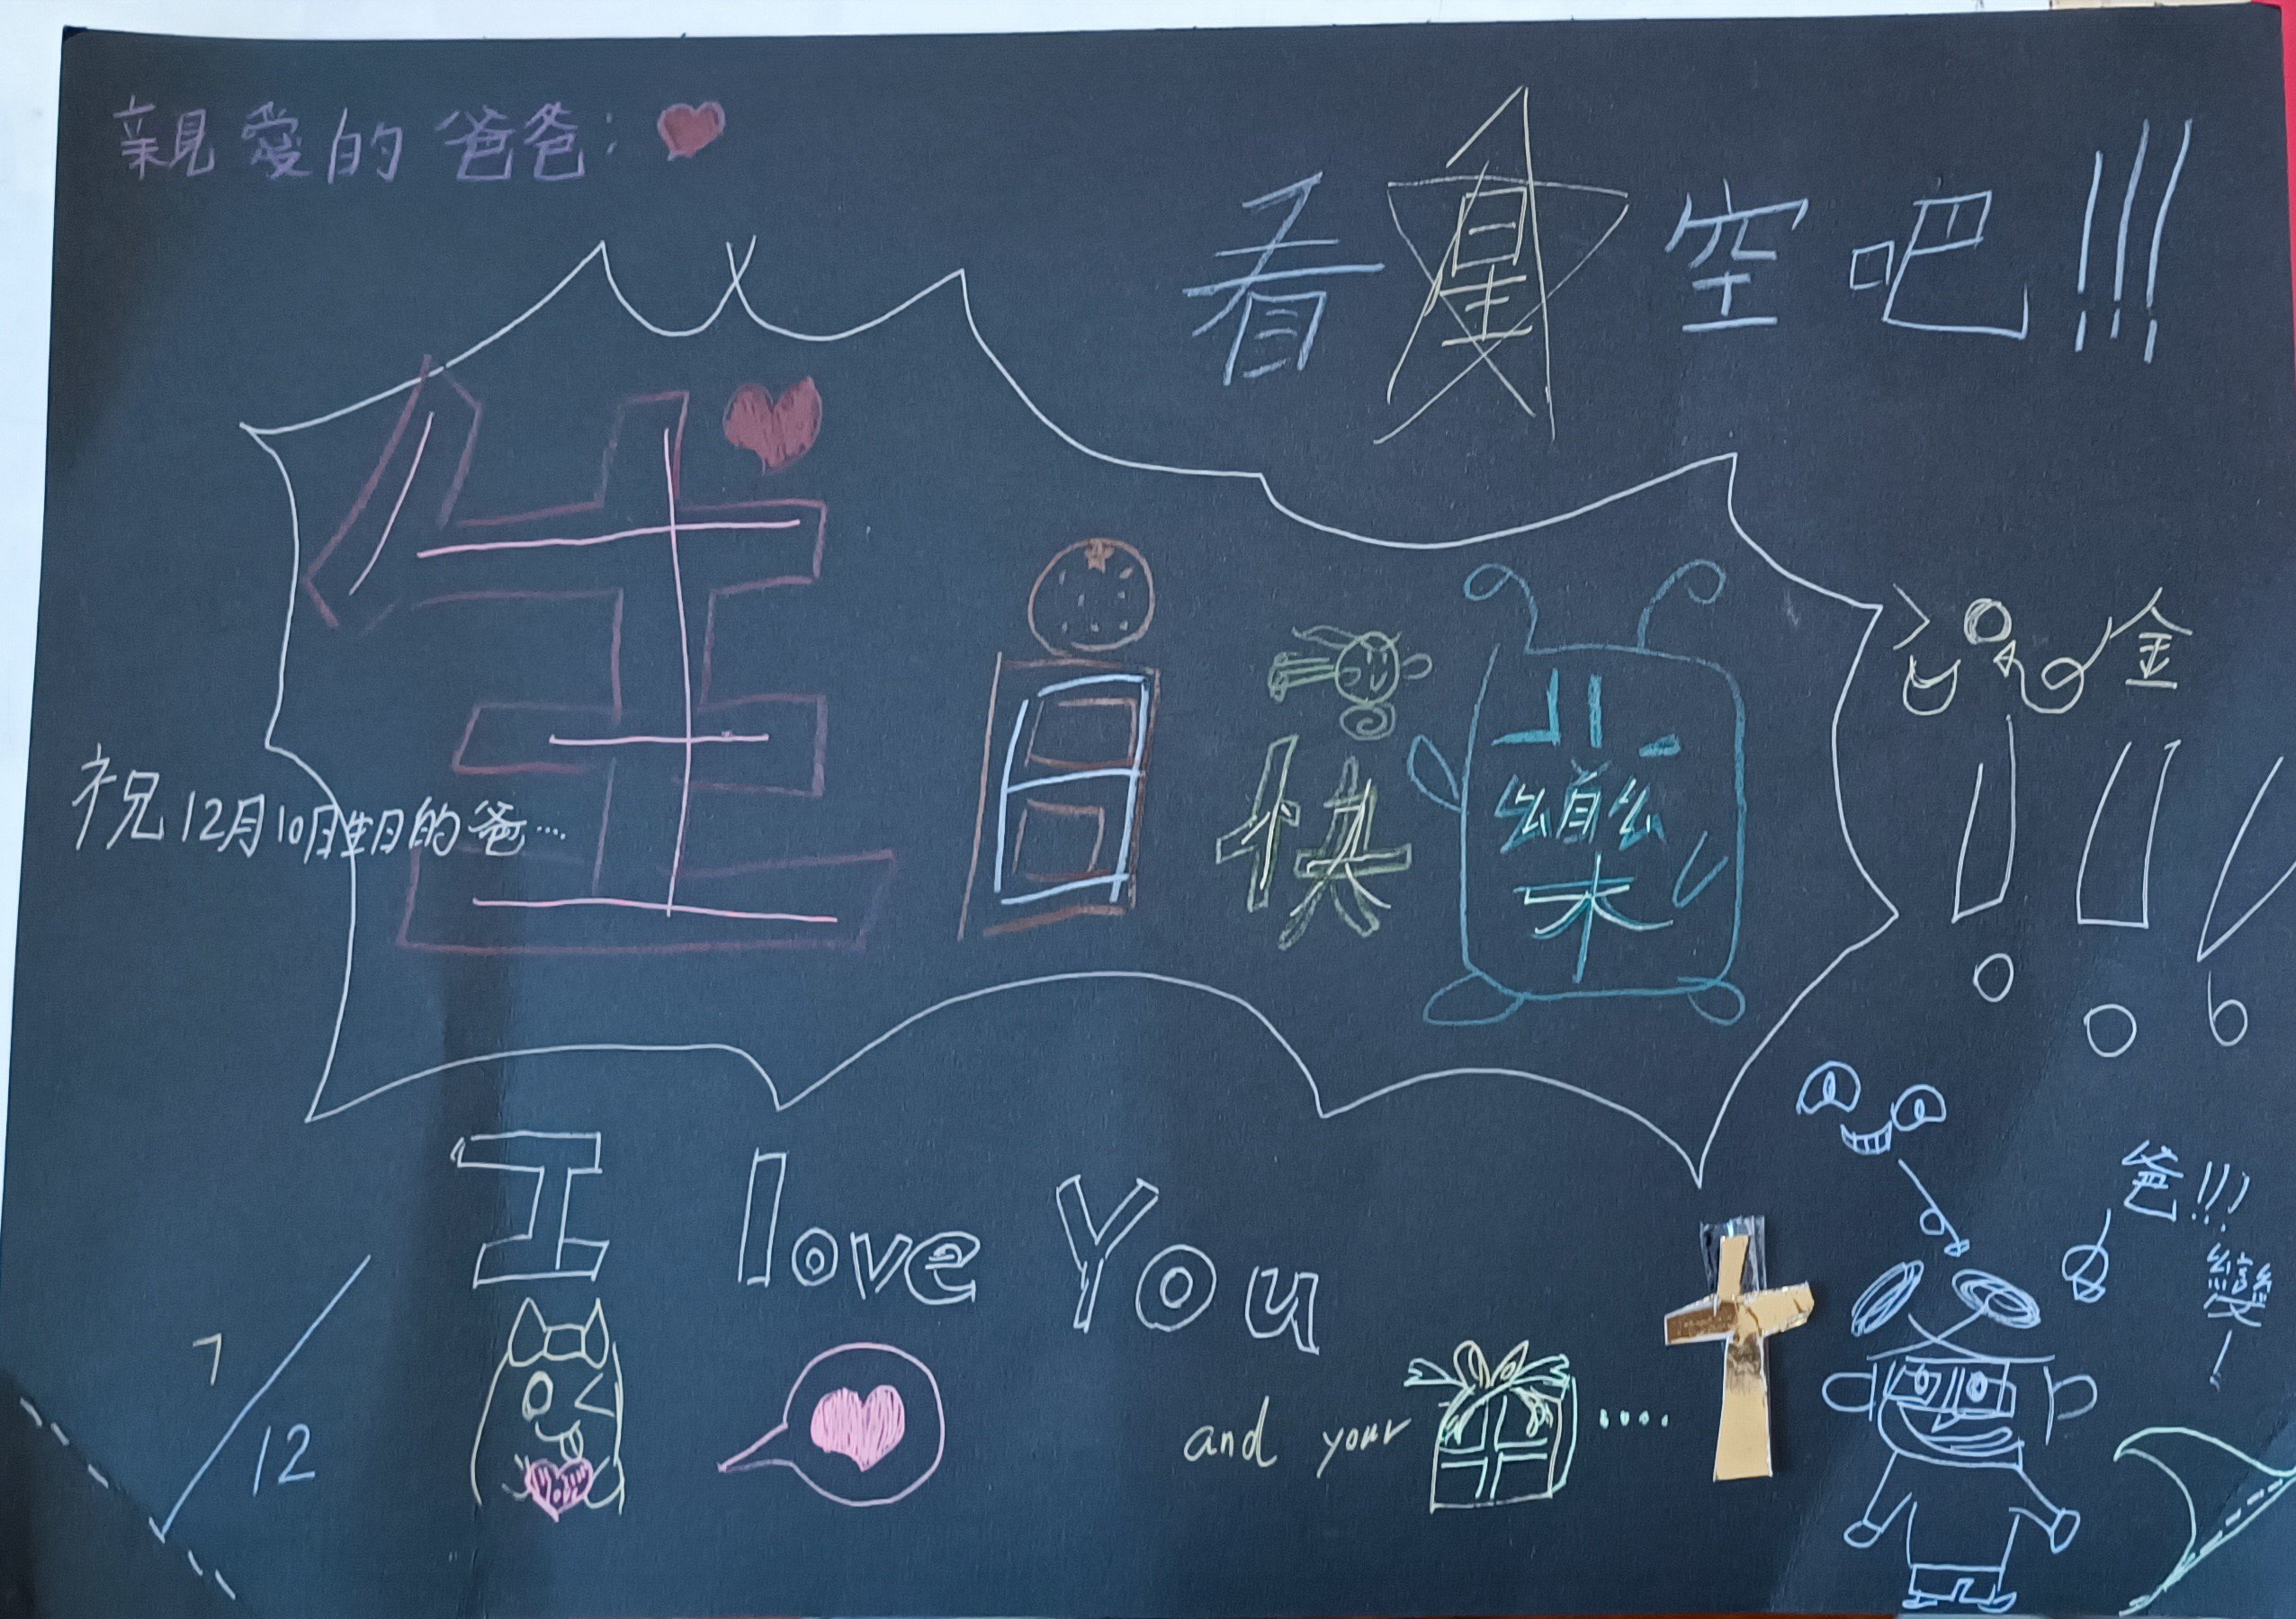 親愛的爸爸:
看星空吧!!!
祝12月10日生日的爸...
生日快樂
金
!!!
I love You
and your ....
爸!!!
7/12